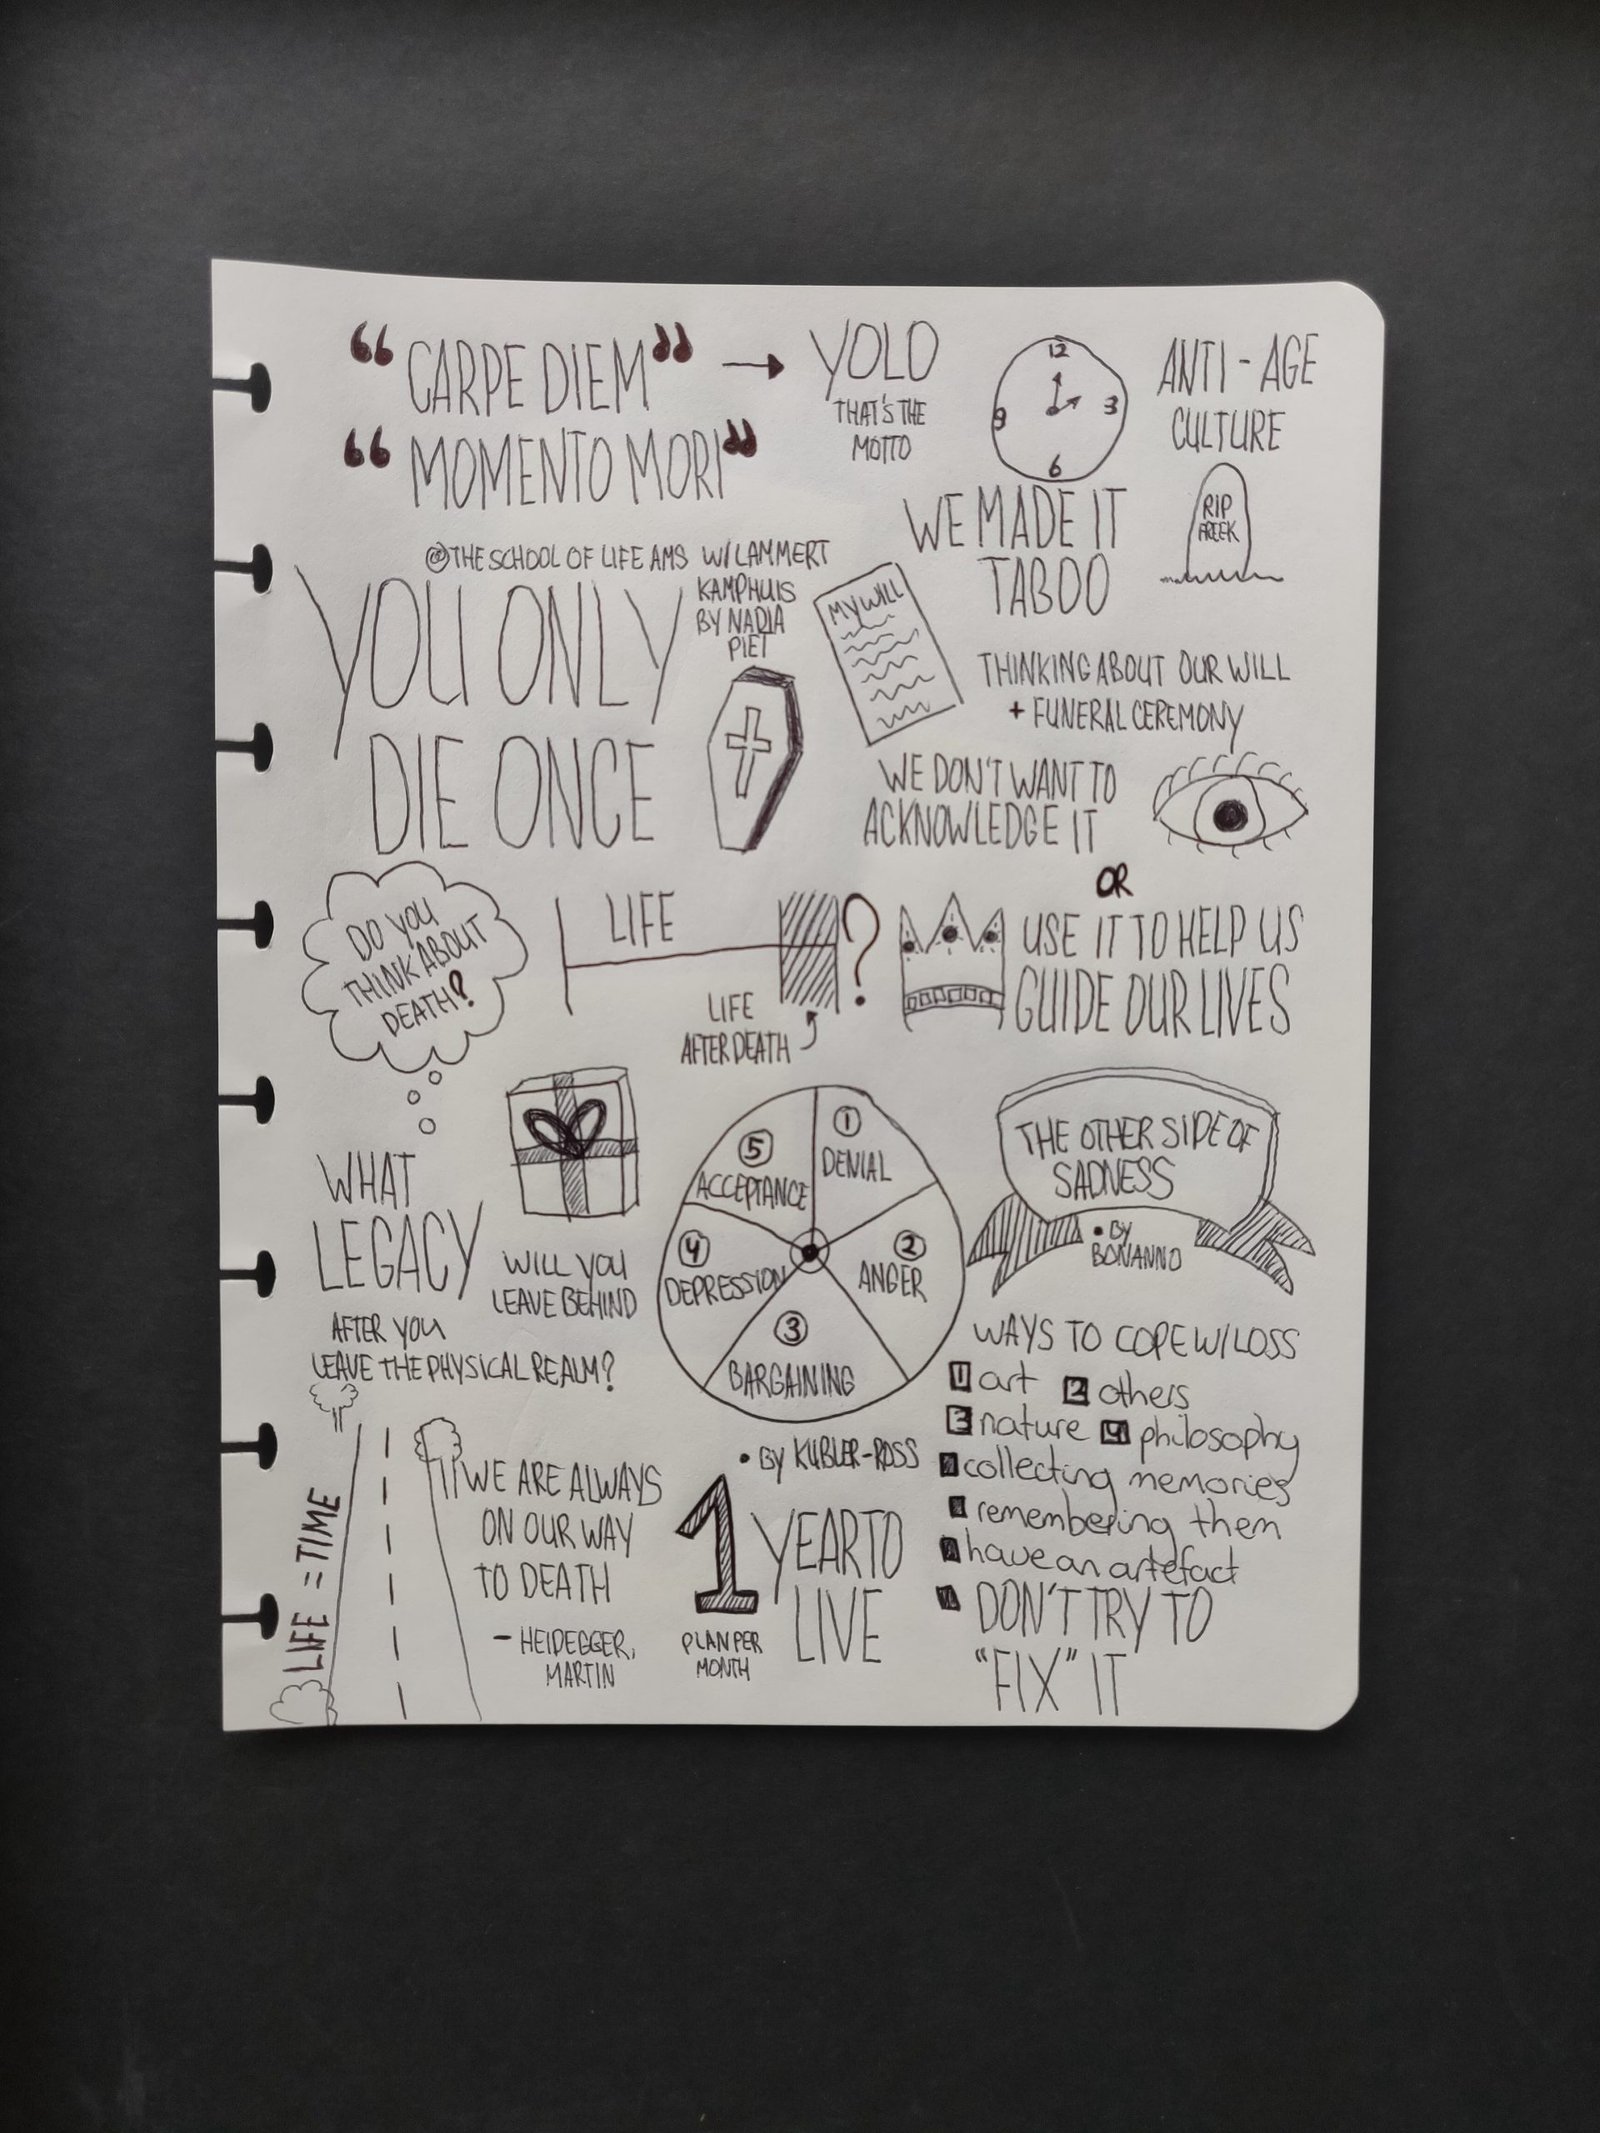 “CARPE DIEM”
“MOMENTO MORI”
→ YOLO
THAT'S THE
MOTTO
12
3
6
9
ANTI-AGE
CULTURE
RIP
WE MADE IT
TABOO
@THE SCHOOL OF LIFE AMS W/ LAMMERT
KAMPHUIS
BY NADIA
PIET
YOU ONLY
DIE ONCE
MY WILL
THINKING ABOUT OUR WILL
+ FUNERAL CEREMONY
WE DON'T WANT TO
ACKNOWLEDGE IT
OR
USE IT TO HELP US
GUIDE OUR LIVES
DO YOU
THINK ABOUT
DEATH?
LIFE
?
LIFE
AFTER DEATH
WHAT
LEGACY
WILL YOU
LEAVE BEHIND
AFTER YOU
LEAVE THE PHYSICAL REALM?
1
DENIAL
2
ANGER
3
BARGAINING
4
DEPRESSION
5
ACCEPTANCE
• BY KUBLER-ROSS
THE OTHER SIDE OF
SADNESS
• BY
BONANNO
WAYS TO COPE W/ LOSS
1 art 2 others
3 nature 4 philosophy
collecting memories
remembering them
have an artefact
DON'T TRY TO
“FIX” IT
LIFE = TIME
WE ARE ALWAYS
ON OUR WAY
TO DEATH
- HEIDEGGER,
MARTIN
1 YEAR TO
LIVE
PLAN PER
MONTH